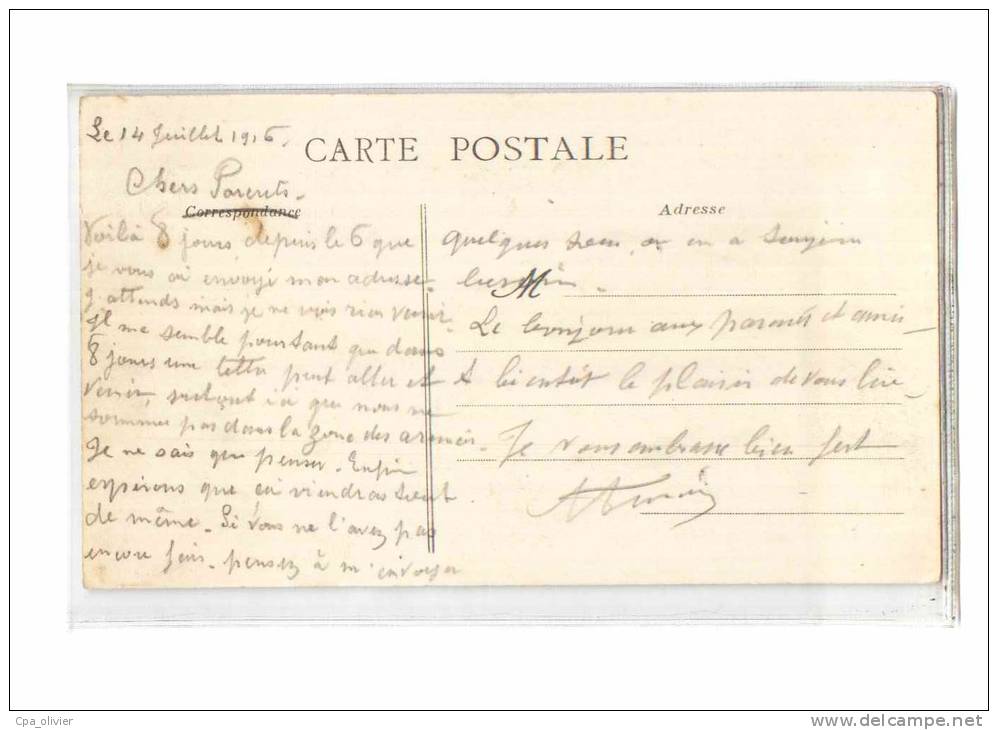 Le 14 Juillet 1916.
CARTE POSTALE
Chers Parents -
Correspondance
Adresse
Voilà 8 jours depuis le 6 que
je vous ai envoyé mon adresse.
J'attends mais je ne vois rien venir.
Il me semble pourtant que dans
8 jours une lettre peut aller et
venir, surtout ici que nous ne
sommes pas dans la zone des armées.
Je ne sais que penser. Enfin
espérons que ça viendra
de même. Si vous ne l'avez pas
encore fait - pensez à m'envoyer
quelques sous, on en a toujours
besoin -
Le bonjour aux parents et amis -
A bientôt le plaisir de vous lire -
Je vous embrasse bien fort
Cpa_olivier
www.delcampe.net